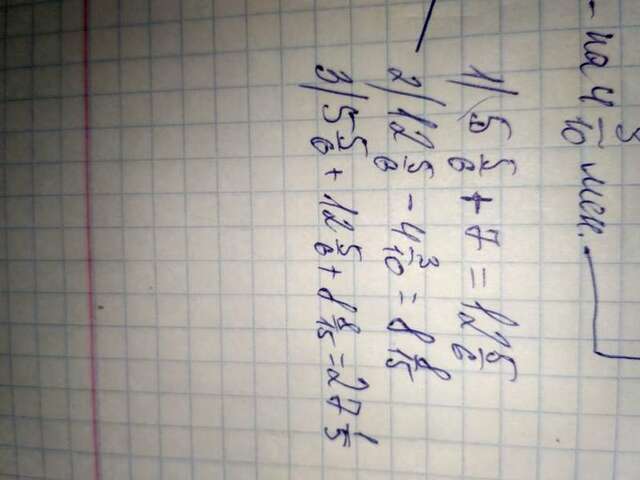 - на 4 3/10 мен.
1) 5 5/6 + 7 = 12 5/6
2) 12 5/6 - 4 3/10 = 8 8/15
3) 5 5/6 + 12 5/6 + 8 8/15 = 27 1/5